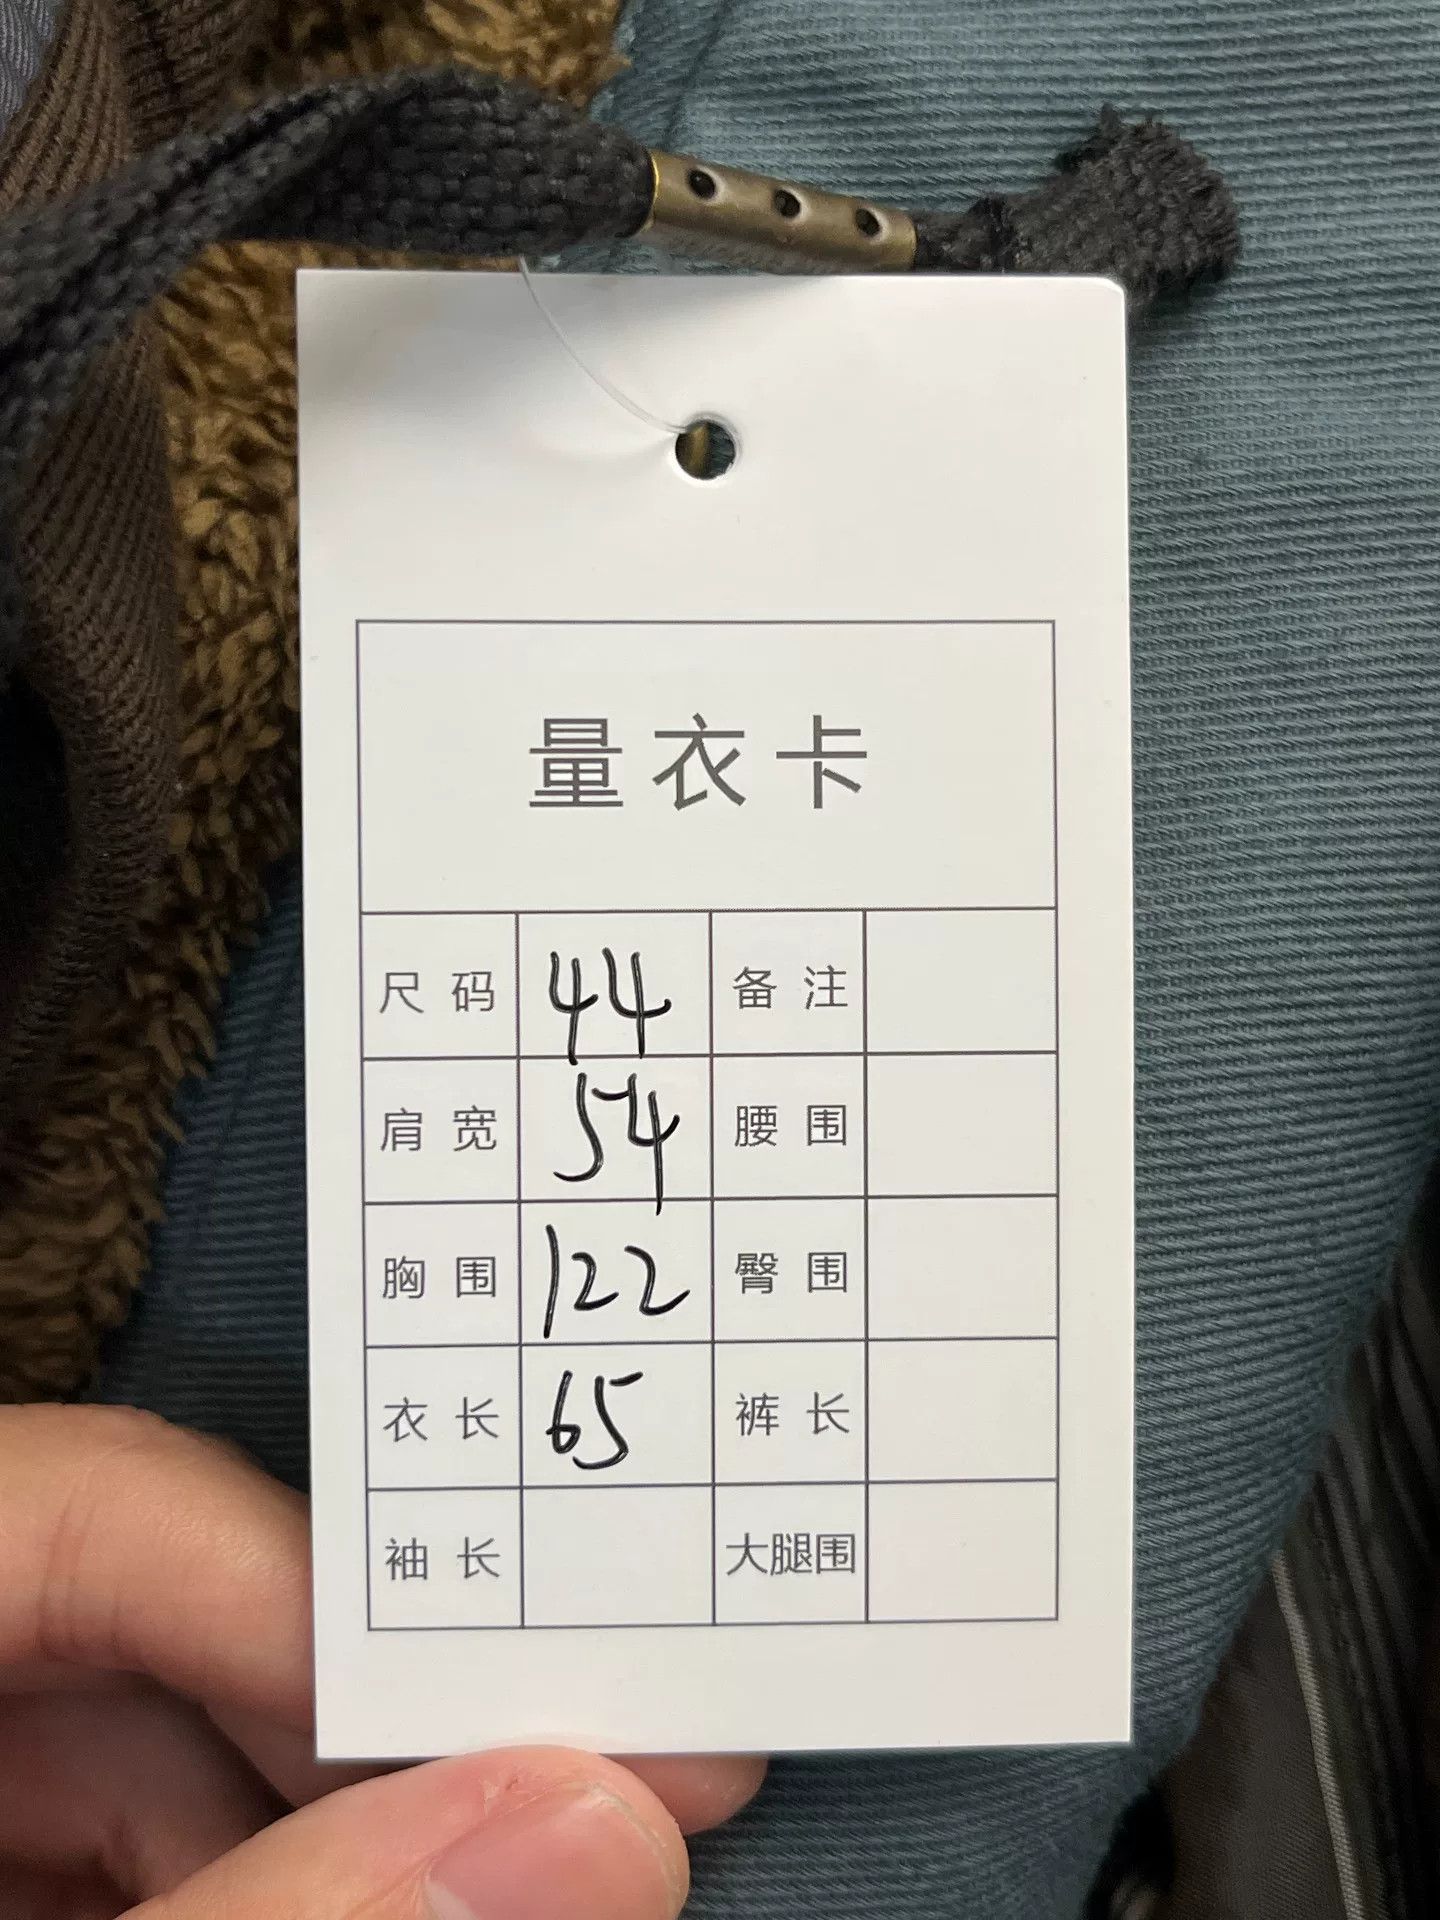 量衣卡
尺码 44 备注
肩宽 54 腰围
胸围 122 臀围
衣长 65 裤长
袖长 大腿围